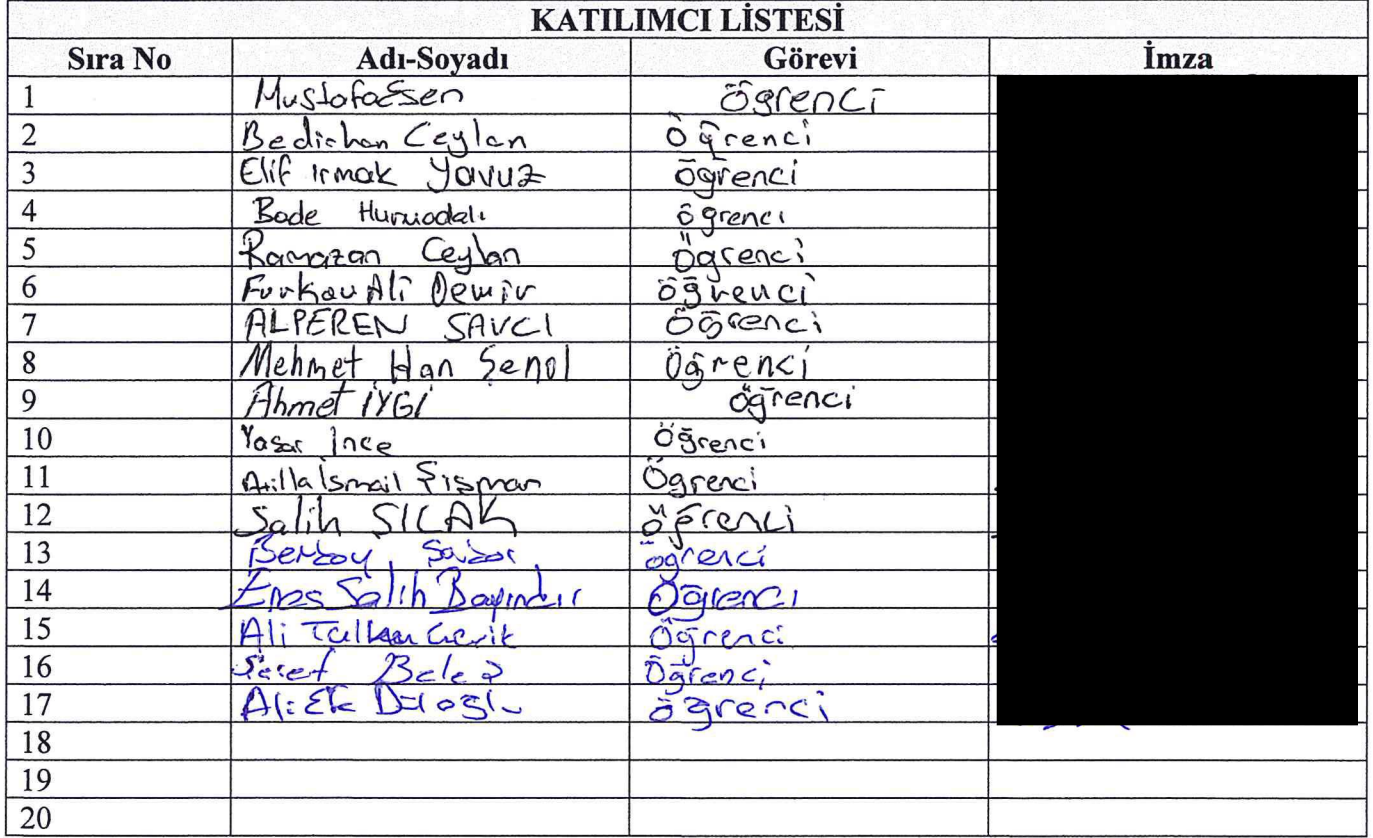 KATILIMCI LİSTESİ
Sıra No Adı-Soyadı Görevi İmza
1 Mustafa Esen Öğrenci
2 Bedirhan Ceylan Öğrenci
3 Elif Irmak Yavuz öğrenci
4 Bade öğrenci
5 Ramazan Ceylan Öğrenci
6 Furkan Ali Demir öğrenci
7 ALPEREN SAVCI Öğrenci
8 Mehmet Han Şenol Öğrenci
9 Ahmet İYGİ öğrenci
10 Yaşar İnce Öğrenci
11 Atilla İsmail Şişman Öğrenci
12 Salih SICAK öğrenci
13 öğrenci
14 Enes Salih Bayındır Öğrenci
15 Ali Öğrenci
16 Öğrenci
17 öğrenci
18
19
20